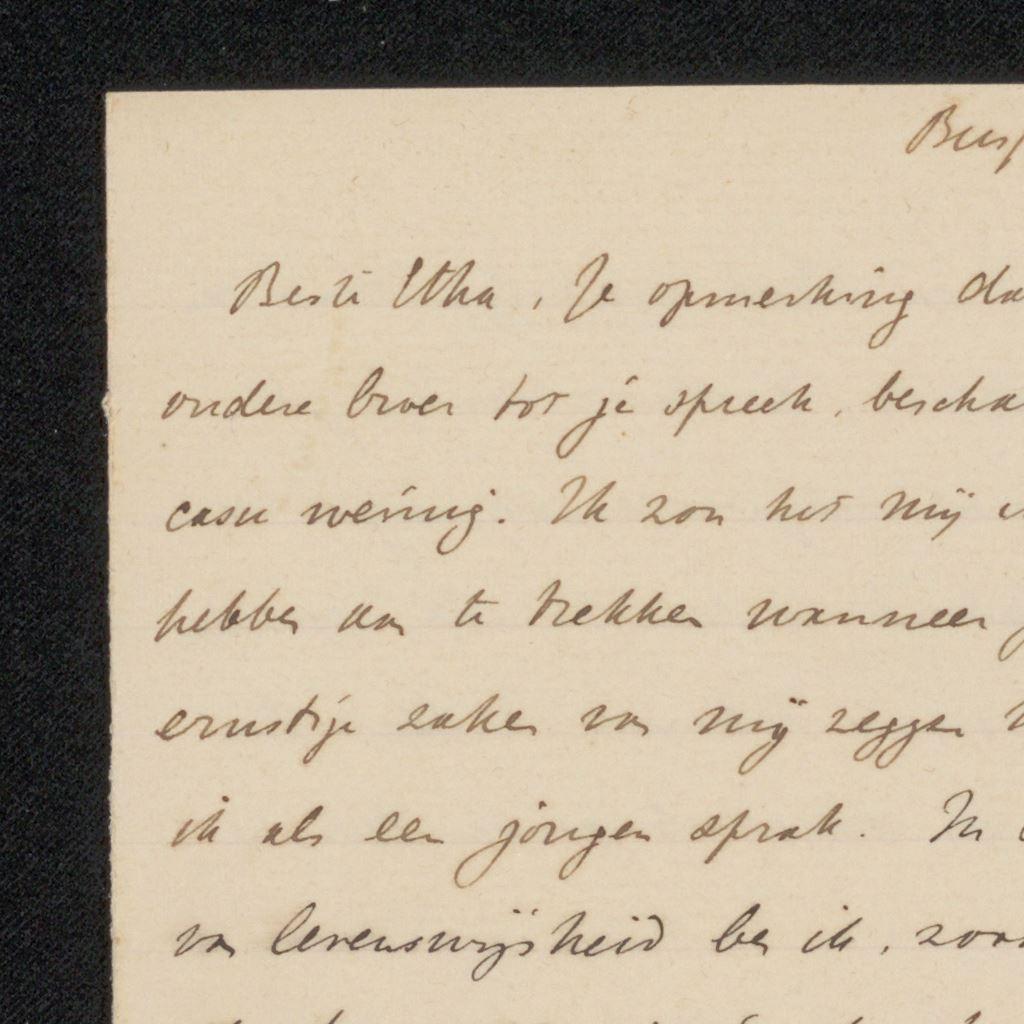 Bus
Beste Etha, Je opmerking da
oudere broer tot je spreek, bescha
casu weinig. Ik zou het mij
hebben aan te trekken wanneer
ernstige zaken van mij zeggen
ik als een jongen sprak. In
van levenswijsheid ben ik, zoo